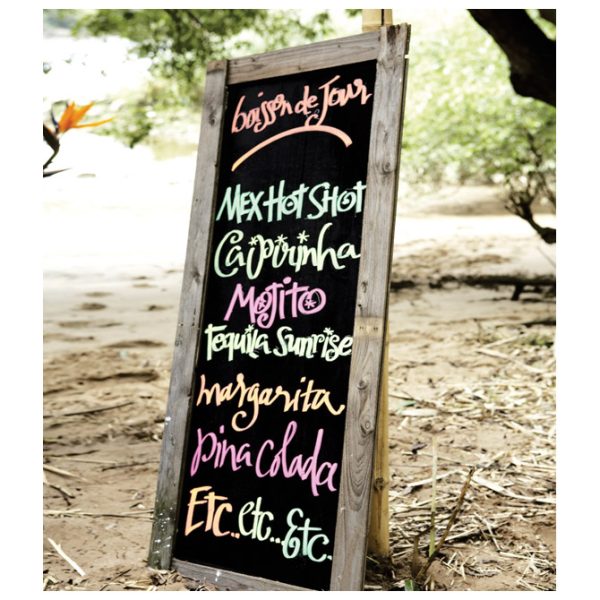 boisson de Jour
Mex Hot Shot
Caipirinha
Mojito
Tequila Sunrise
margarita
Pina Colada
Etc.. etc... Etc.